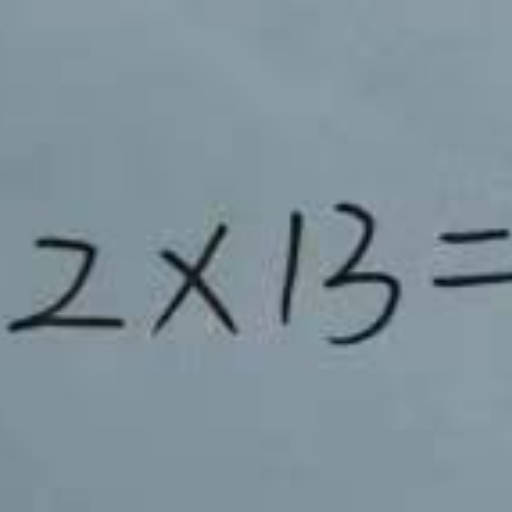 2×13=